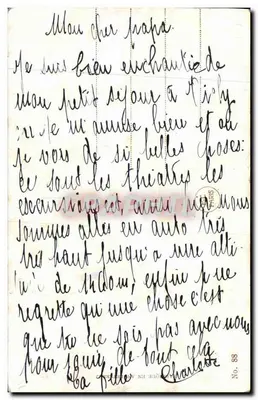 Mon cher papa.
Je suis bien enchantée de
mon petit séjour à Vichy
je m'amuse bien et ou
je vois de si belles choses:
ce sont les théatres les
excursions, nous
sommes allés en auto très
très haut jusqu'à une alti-
de 1200m; enfin je ne
regrette qu'une chose c'est
que tu ne sois pas avec nous
pour jouir de tout ça
Ta fille Charlotte
No. 88